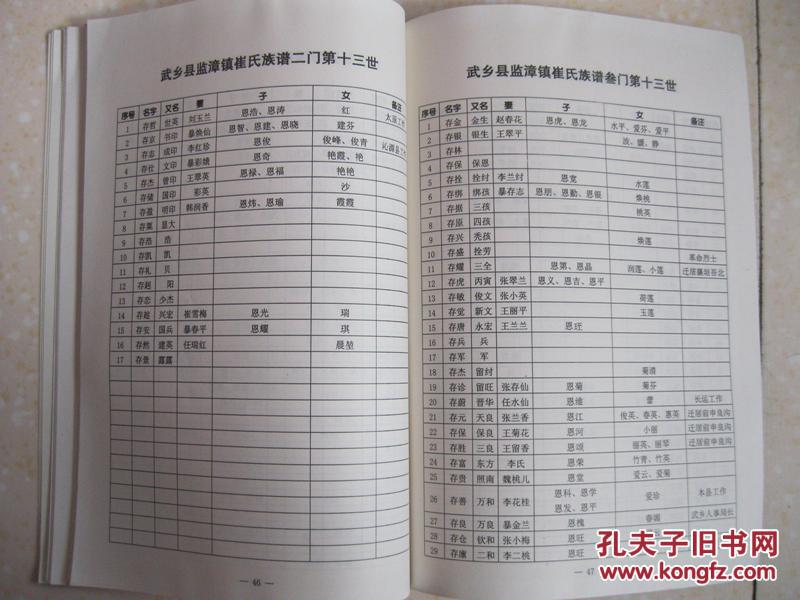 武乡县监漳镇崔氏族谱二门第十三世
序号 名字 又名 妻 子 女 备注
1 存哲 世英 刘玉兰 恩浩、恩涛 红 太原工作
2 存京 书印 暴焕仙 恩智、恩建、恩晓 建芬
3 存志 成印 李红珍 恩俊 俊峰、俊青 沁源县工作
4 存仕 文印 暴彩娥 恩奇 艳霞、艳
5 存杰 曾印 王翠英 恩禄、恩福 艳艳
6 存储 国印 彩英 沙
7 存盈 明印 韩润香 恩炜、恩瑜 霞霞
8 存粟 显大
9 存浩 浩
10 存凯 凯
11 存礼 贝
12 存赵 阳
13 存恋 少杰
14 存趁 兴宏 崔雪梅 恩光 瑞
15 存安 国兵 暴春平 恩耀 琪
16 存然 建英 任瑞红 晨堃
17 存景 露露
— 46 —
武乡县监漳镇崔氏族谱叁门第十三世
序号 名字 又名 妻 子 女 备注
1 存金 金生 赵春花 恩虎、恩龙 水平、爱芬、爱平
2 存银 银生 王翠平 波、媛、静
3 存林
4 存保 保恩
5 存拴 拴封 李兰封 恩宽 水莲
6 存绑 绑孩 暴存志 恩朋、恩勤、恩银 焕桃
7 存据 三孩 桃英
8 存原 四孩
9 存兴 秃孩 焕莲
10 存盛 拴劳 革命烈士
11 存耀 三全 恩第、恩晶 润莲、小莲 迁居襄垣吾北
12 存虎 丙寅 张翠兰 恩义、恩吉、恩平
13 存敏 俊文 张小英 荷莲
14 存觉 新文 王丽平 玉莲
15 存唐 永宏 王兰兰 恩玨
16 存兵 兵
17 存军 军
18 存杰 留封 菊清
19 存诊 留旺 张存仙 恩菊 菊芬
20 存蔚 晋华 任水仙 恩雄 蕾 长运工作
21 存元 天良 张兰香 恩江 俊英、春英、惠英 迁居前申良沟
22 存保 保良 王菊花 恩河 小丽 迁居前申良沟
23 存胜 三良 王留香 恩颂 丽英、丽琴 迁居前申良沟
24 存富 东方 李氏 恩荣 竹青、竹英
25 存贵 照南 魏桃儿 恩堂 爱云、爱菊
26 存善 万和 李花桂 恩科、恩学 恩发、恩平 爱珍 本县工作
27 存良 万良 暴金兰 恩槐 春媚 武乡人事局长
28 存仓 钦和 张小梅 恩旺
29 存康 二和 李二桃 恩旺
— 47
孔夫子旧书网
www.kongfz.com